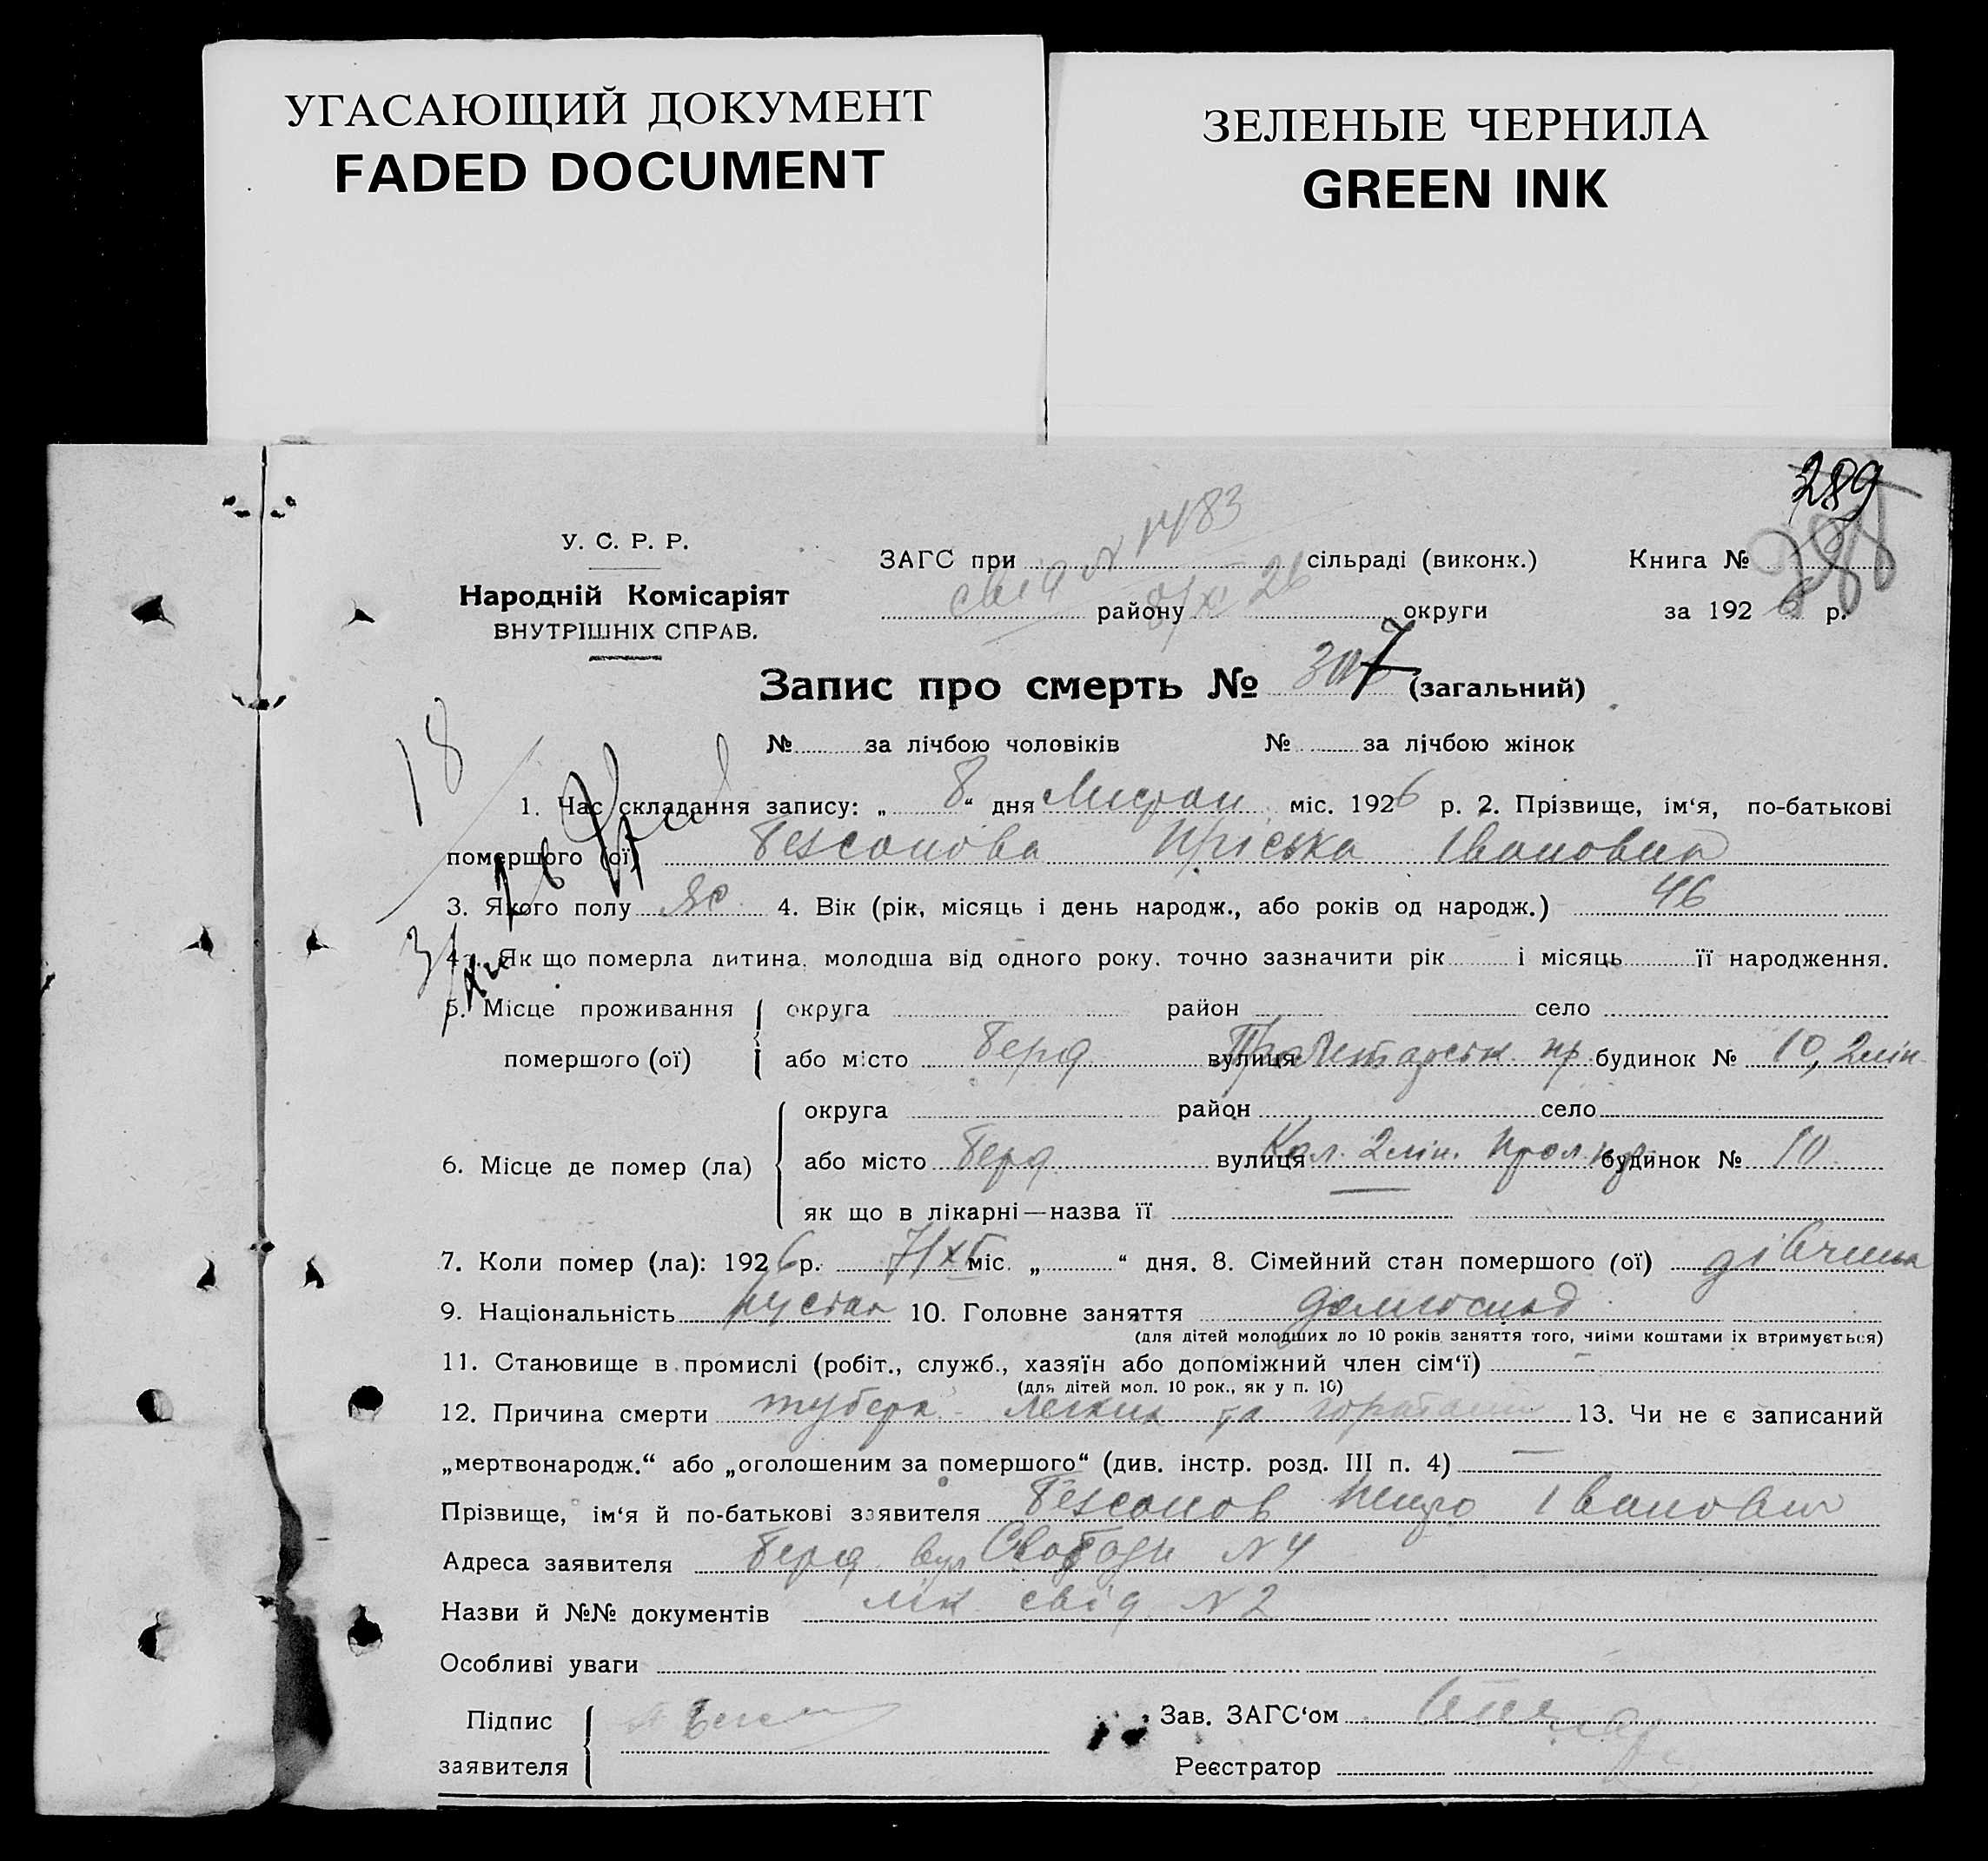 УГАСАЮЩИЙ ДОКУМЕНТ
FADED DOCUMENT
ЗЕЛЕНЫЕ ЧЕРНИЛА
GREEN INK
289
288
У. С. Р. Р.
Народній Комісаріят
ВНУТРІШНІХ СПРАВ.
ЗАГС при сільраді (виконк.) Книга №
району округи за 1926 р.
свід № 1483
8/XI 26
Запис про смерть № 307 (загальний)
№ за лічбою чоловіків № за лічбою жінок
18
1. Час складання запису: „ 8 “ дня Листоп міс. 1926 р. 2. Прізвище, ім‘я, по-батькові
помершого (ої) Безсонова Пріська Івановна
3. Якого полу жо 4. Вік (рік, місяць і день народж., або років од народж.) 46
4а. Як що померла дитина, молодша від одного року, точно зазначити рік і місяць її народження.
5. Місце проживання помершого (ої) округа район село
або місто Берд вулиця Пролетарськ. пр. будинок № 10, 2 лін
6. Місце де помер (ла) округа район село
або місто Берд вулиця Кол. 2 лін. Прол. пр. будинок № 10
як що в лікарні—назва її —
7. Коли помер (ла): 1926 р. 7/XI міс. „ “ дня. 8. Сімейний стан помершого (ої) дівчина
9. Національність 10. Головне заняття домгоспод
(для дітей молодших до 10 років заняття того, чиїми коштами їх втримується)
11. Становище в промислі (робіт., служб., хазяїн або допоміжний член сім‘ї) —
(для дітей мол. 10 рок., як у п. 10)
12. Причина смерти туберк легких та 13. Чи не є записаний
„мертвонародж.“ або „оголошеним за помершого“ (див. інстр. розд. III п. 4) —
Прізвище, ім‘я й по-батькові заявителя Безсонов Петро Іванович
Адреса заявителя Берд вул Свободи № 4
Назви й №№ документів лік свід № 2
Особливі уваги
Підпис заявителя
Зав. ЗАГС‘ом
Реєстратор